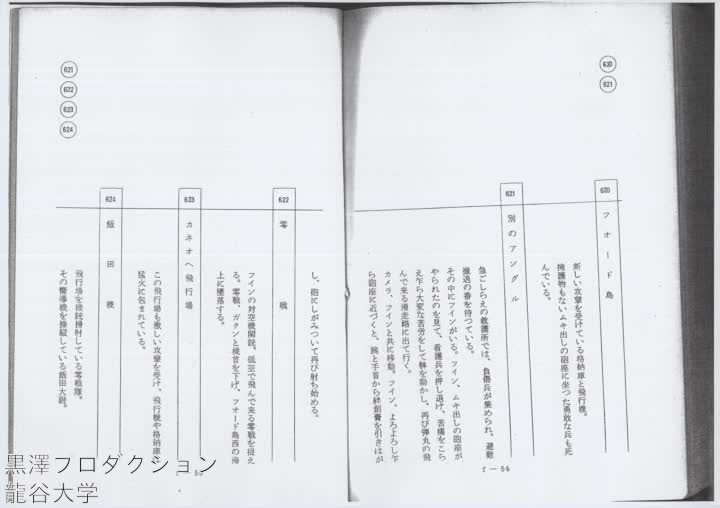 620
621
620
フォード島
新しい攻撃を受けている格納庫と飛行機。
掩護物もないムキ出しの砲座に坐つた勇敢な兵も死
んでいる。
621
別のアングル
急ごしらえの救護所では、負傷兵が集められ、避難
撤退の番を待つている。
その中にフインがいる。フイン、ムキ出しの砲座が
やられたのを見て、看護兵を押し退け、苦痛をこら
え乍ら大変な苦労をして躰を動かし、再び弾丸の飛
んで来る滑走路に出て行く。
カメラ、フインと共に移動。フイン、よろよろし乍
ら砲座に近づくと、腕と手首から絆創膏を引きはが
f—54
621
622
623
624
し、砲にしがみついて再び射ち始める。
622
零戦
フインの対空機関銃、低空で飛んで来る零戦を捉え
る。零戦、ガクンと機首を下げ、フオード島西の海
上に墜落する。
623
カネオヘ飛行場
この飛行場も激しい攻撃を受け、飛行機や格納庫は
猛火に包まれている。
624
飯田機
飛行場を機銃掃射している零戦隊。
その嚮導機を操縦している飯田大尉。
f—55
黒澤プロダクション
龍谷大学